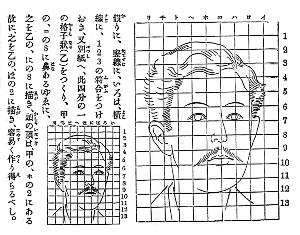 イロハニホヘトチリ
1
2
3
4
5
6
7
8
9
10
11
12
13
假りに、縱線に、いろは、橫
線に、123の符合をつけ
おき、又別紙へ此四分の一
の格子狀(乙)をつくり、甲
の、ニの8に鼻あるゆゑに、
之を乙の、にの8に描き、頭の頂は甲の、ホの2にある
故に之を乙のへほの2に描き容易く作り得らるべし。
1
2
3
4
5
6
7
8
9
10
11
12
13